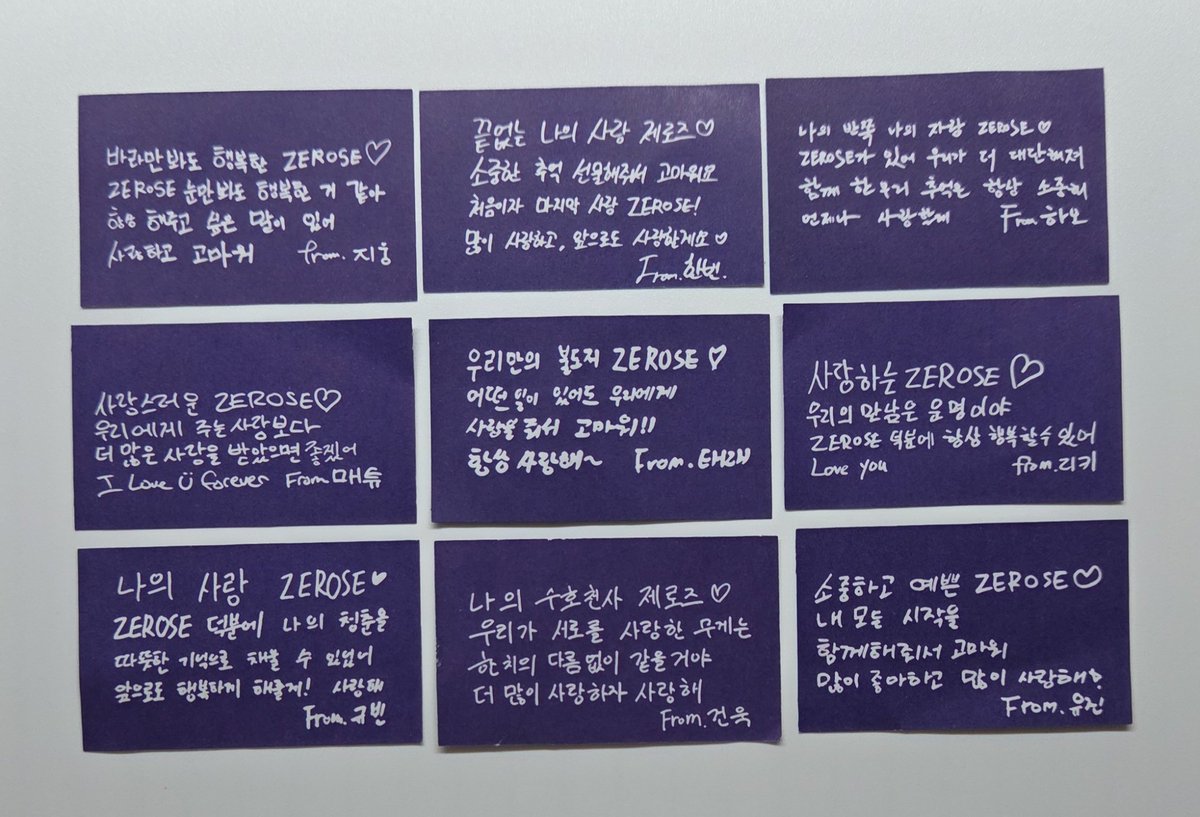 바라만봐도 행복한 ZEROSE♡
ZEROSE 눈만봐도 행복한 거 같아
항상 해주고 싶은 말이 있어
사랑하고 고마워 from. 지웅
끝없는 나의 사랑 제로즈♡
소중한 추억 선물해줘서 고마워요
처음이자 마지막 사랑 ZEROSE!
많이 사랑하고, 앞으로도 사랑할게요♡
From. 한빈.
나의 반쪽 나의 자랑 ZEROSE♡
ZEROSE가 있어 우리가 더 대단해져
함께 한 우리 추억은 항상 소중히
언제나 사랑할게 From. 하오
사랑스러운 ZEROSE♡
우리에게 주는사랑보다
더 많은 사랑을 받았으면 좋겠어
I Love Ü forever From 매튜
우리만의 ZEROSE♡
어떤일이 있어도 우리에게
사랑을 줘서 고마워!!
항상 사랑해~ From. 태래
사랑하는 ZEROSE♡
우리의 만남은 운명이야
ZEROSE 덕분에 항상 행복할 수 있어
Love you from. 리키
나의 사랑 ZEROSE♥
ZEROSE 덕분에 나의 청춘을
따뜻한 기억으로 채울 수 있었어
앞으로도 행복하게 해줄게! 사랑해
From. 규빈
나의 수호천사 제로즈♡
우리가 서로를 사랑한 무게는
한치의 다름없이 같을거야
더 많이 사랑하자 사랑해
From. 건욱
소중하고 예쁜 ZEROSE♡
내 모든 시작을
함께해줘서 고마워
많이 좋아하고 많이 사랑해!
From. 유진